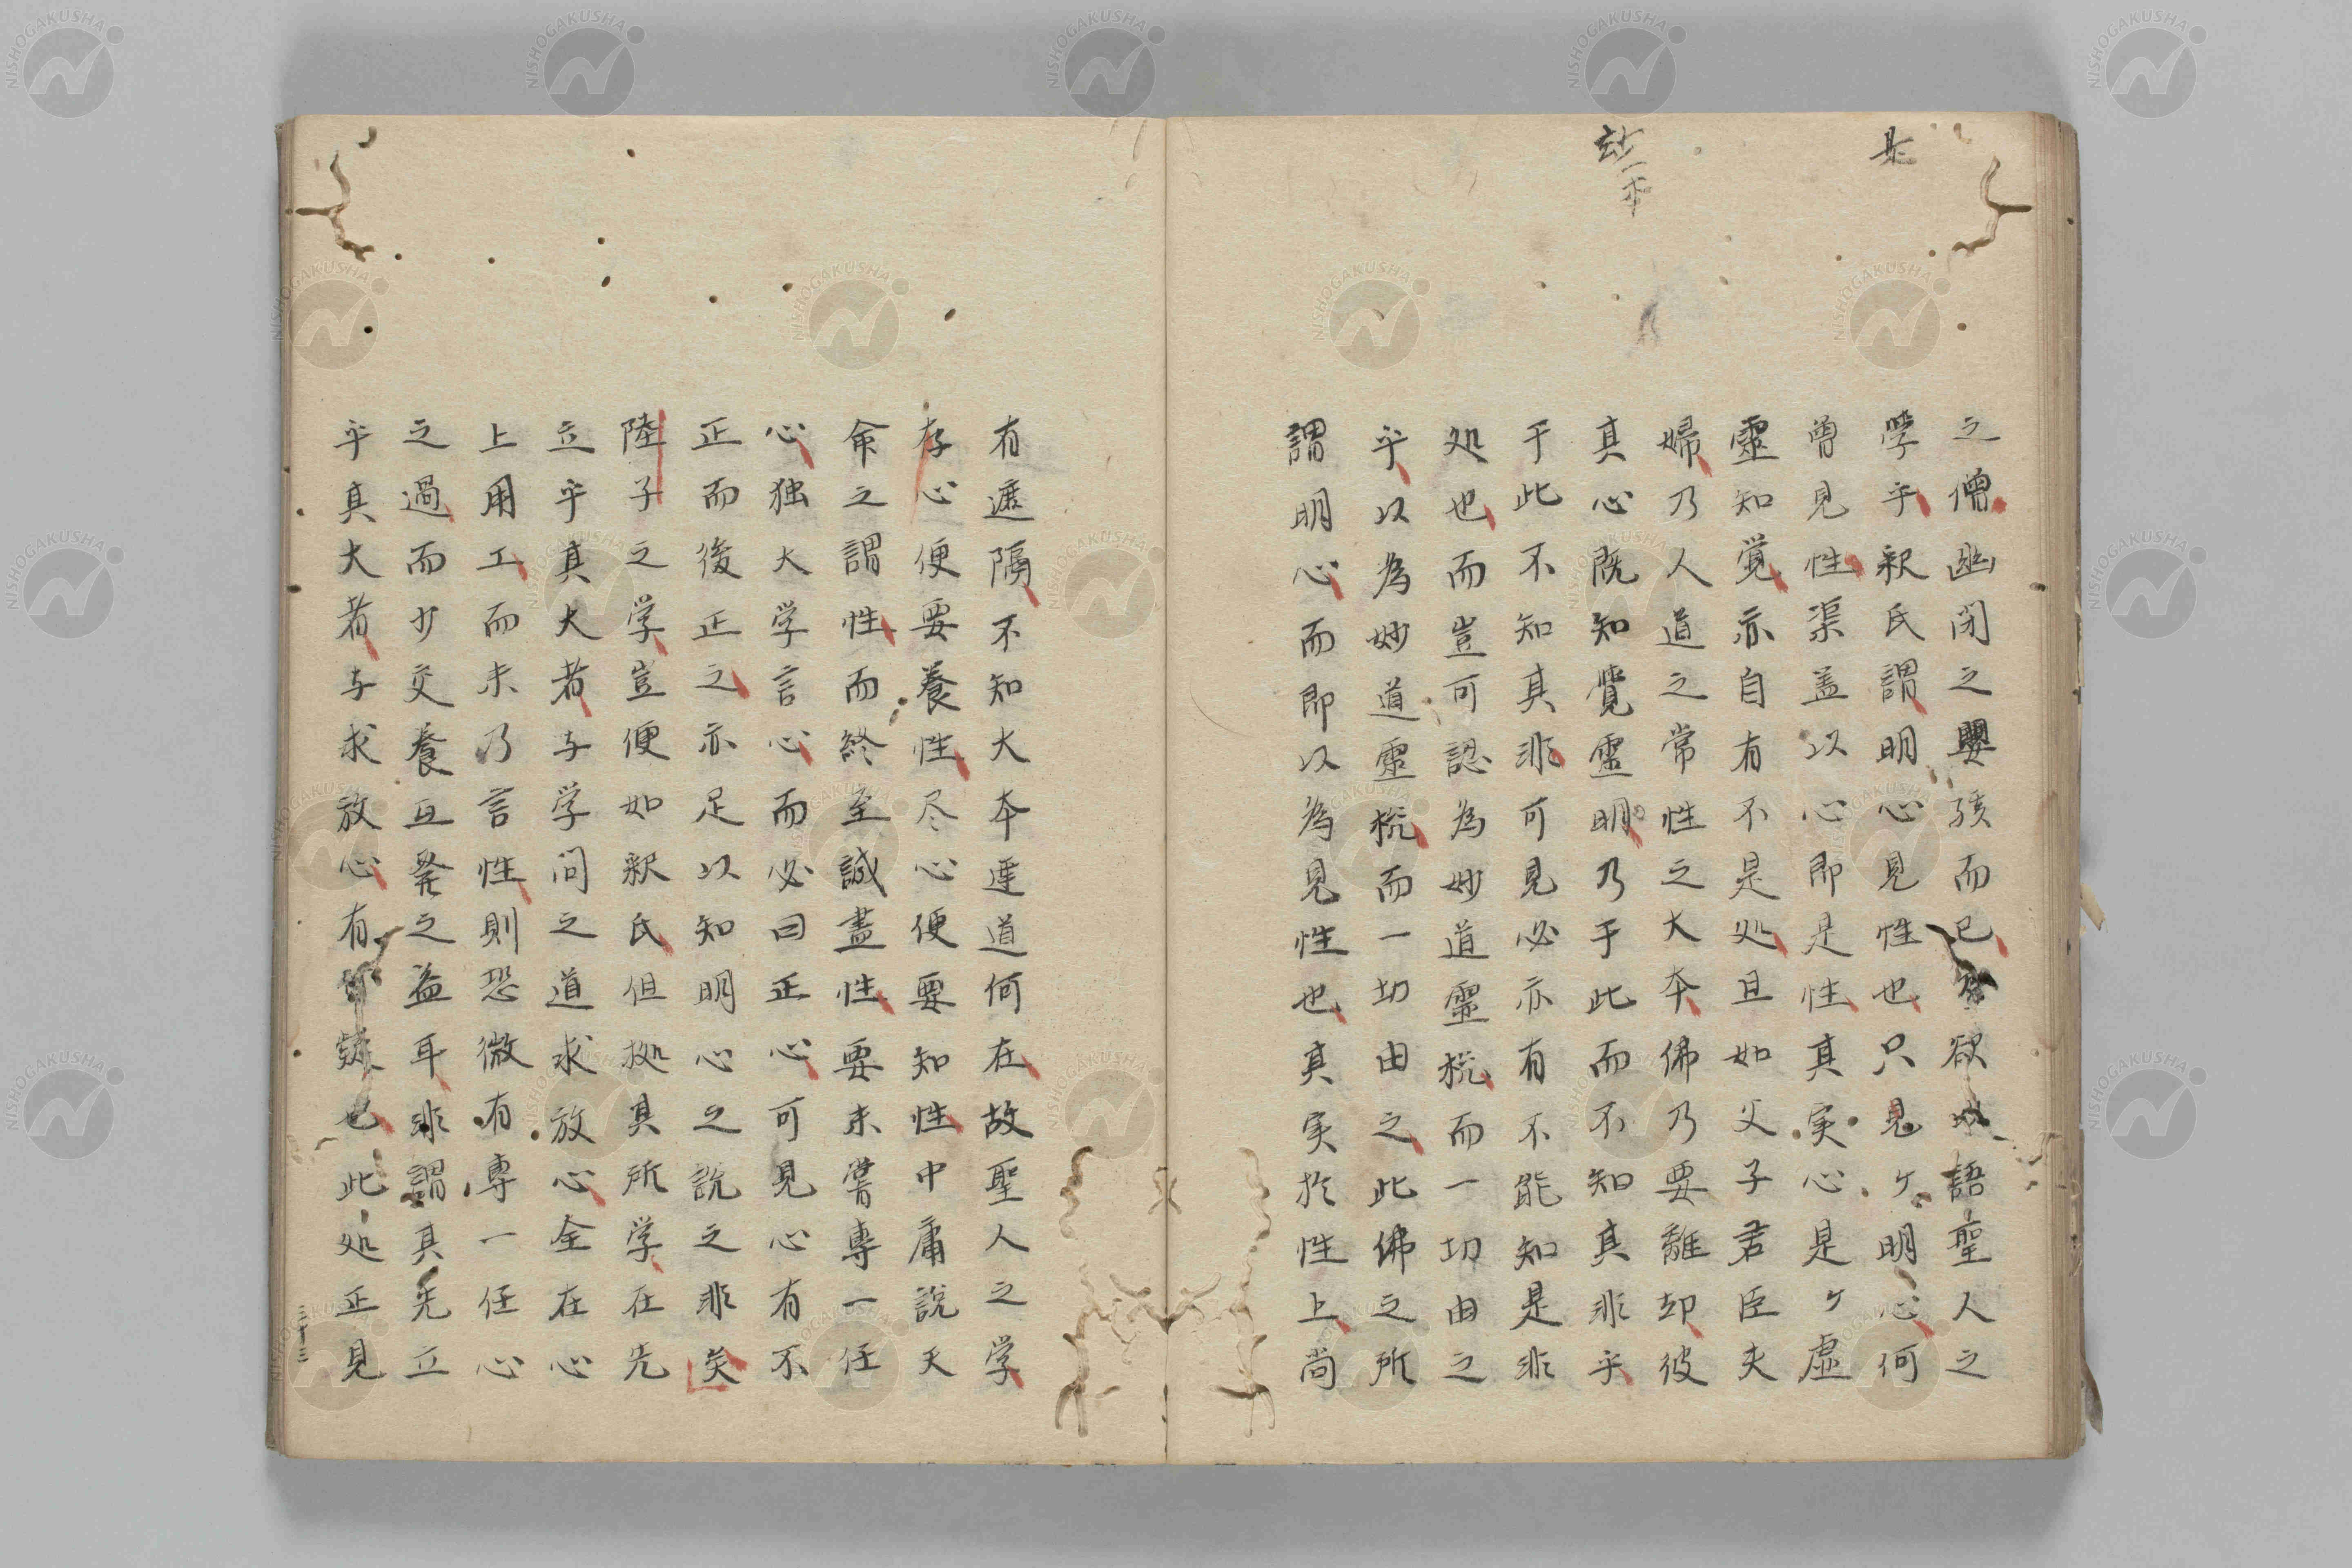 是
妙一本
之僧幽閉之嬰孩而已欲以語聖人之
学乎釈氏謂明心見性也只見ケ明心何
曽見性渠盖以心即是性真実心是ケ虚
靈知覚亦自有不是処且如父子君臣夫
婦乃人道之常性之大本佛乃要離却彼
真心既知覺靈明乃于此而不知真非乎
于此不知其非可見必亦有不能知是非
処也而豈可認為妙道靈梳而一切由之
乎以為妙道靈梳而一切由之此佛之所
謂明心而即以為見性也真実於性上尚
有遮隔不知大本達道何在故聖人之学
存心便要養性尽心便要知性中庸説天
命之謂性而終至誠盡性要未嘗専一任
心独大学言心而必曰正心可見心有不
正而後正之亦足以知明心之説之非矣
陸子之学豈便如釈氏但拠其所学在先
立乎其大者与学問之道求放心全在心
上用工而未乃言性則恐微有専一任心
之過而少交養互発之益耳非謂其先立
乎其大者与求放心有也此処正見
三十三
NISHOGAKUSHA